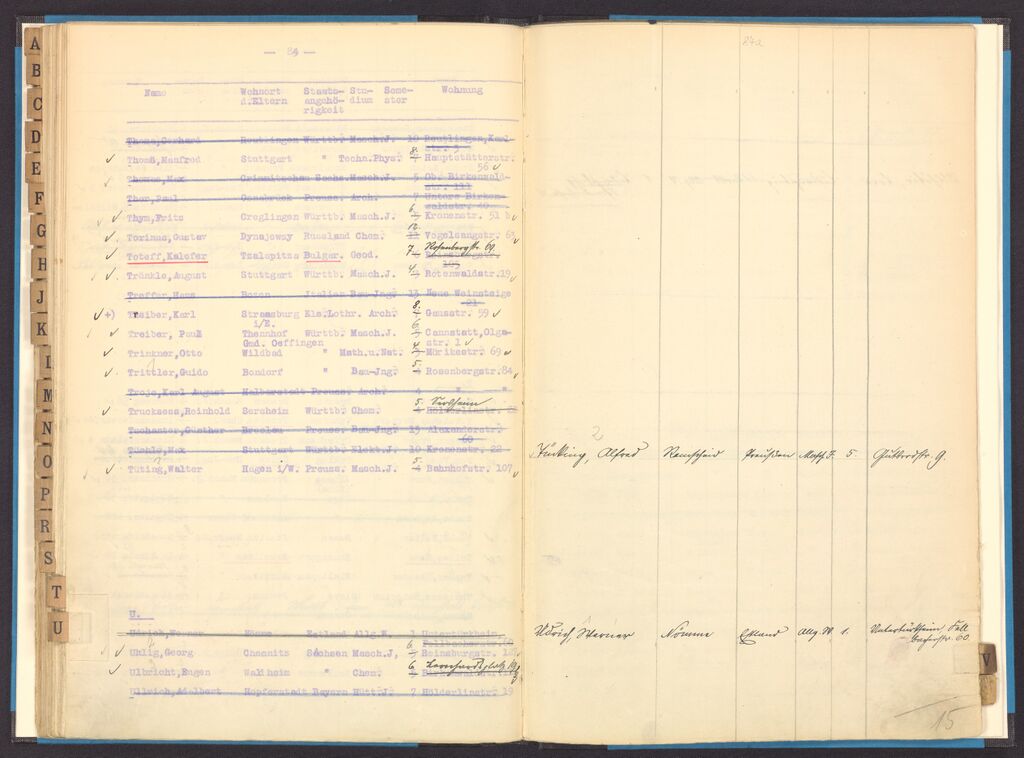 A
B
C
D
E
F
G
H
J
K
L
M
N
O
P
R
S
T
U
V
Name Wohnort Staats- Stu- Seme- Wohnung
d.Eltern angehö- dium ster
rigkeit
Thoma,Gerhard Reutlingen Württb. Masch.J. 10 Reutlingen,Karl
str. 5
Thomä,Manfred Stuttgart " Techn.Phys. 8. Hauptstätterstr.
56
Thomas,Max Crimmitschau Sachs.Masch.J. 5 Ob. Birkenwald-
str. 111
Thor,Paul Osnabrück Preuss. Arch. 7 Untere Birken-
waldstr. 40
Thym,Fritz Creglingen Württb. Masch.J. 6. Kronenstr. 51 b
Torinus,Gustav Dynajowzy Russland Chem. 12. Vogelsangstr. 63
Toteff,Kalofer Tzalapitza Bulgar. Geod. 7. Rosenbergstr. 69.
Tränkle,August Stuttgart Württb. Masch.J. 4. Rotenwaldstr.19
Treffer,Hans Bozen Italien Bau-Jng. 13 Neue Weinsteige
21
+) Treiber,Karl Strassburg Els.Lothr. Arch. 8. Gausstr. 59
i/E.
Treiber, Paul Thennhof Württb. Masch.J. 6. Cannstatt,Olga-
Gmd. Oeffingen str. 1
Trinkner,Otto Wildbad " Math.u.Nat. Mörikestr. 69
Trittler,Guido Bondorf " Bau-Jng. 5. Rosenbergstr.84
Troje,Karl August Halberstadt Preuss. Arch. " "
Trucksess,Reinhold Sersheim Württb. Chem. 5. Sersheim
Tuchanter,Günther Breslau Preuss. Bau-Jng. 13 Alexanderstr.
60
Max Stuttgart Württb. Elekt.J. 10 Kronenstr. 22
Tüting,Walter Hagen i/W. Preuss. Masch.J. 5. Bahnhofstr. 107
U.
Udrich,Werner Nömme Estland Allg.W. 1 Untertürkheim,
Uhlig,Georg Chemnitz Sachsen Masch.J, 6. Reinsburgstr.
Ulbricht,Eugen Waldheim " Chem. 6. Leonhardtsplatz
Ullrich,Adelbert Hopferstadt Bayern Hütt.J. 7 Hölderlinstr. 19
27a
2
Alfred Remscheid Preußen Masch.J. 5. 9
Udrich, Werner Nömme Estland Allg. W. 1. Untertürkheim,
60.
15